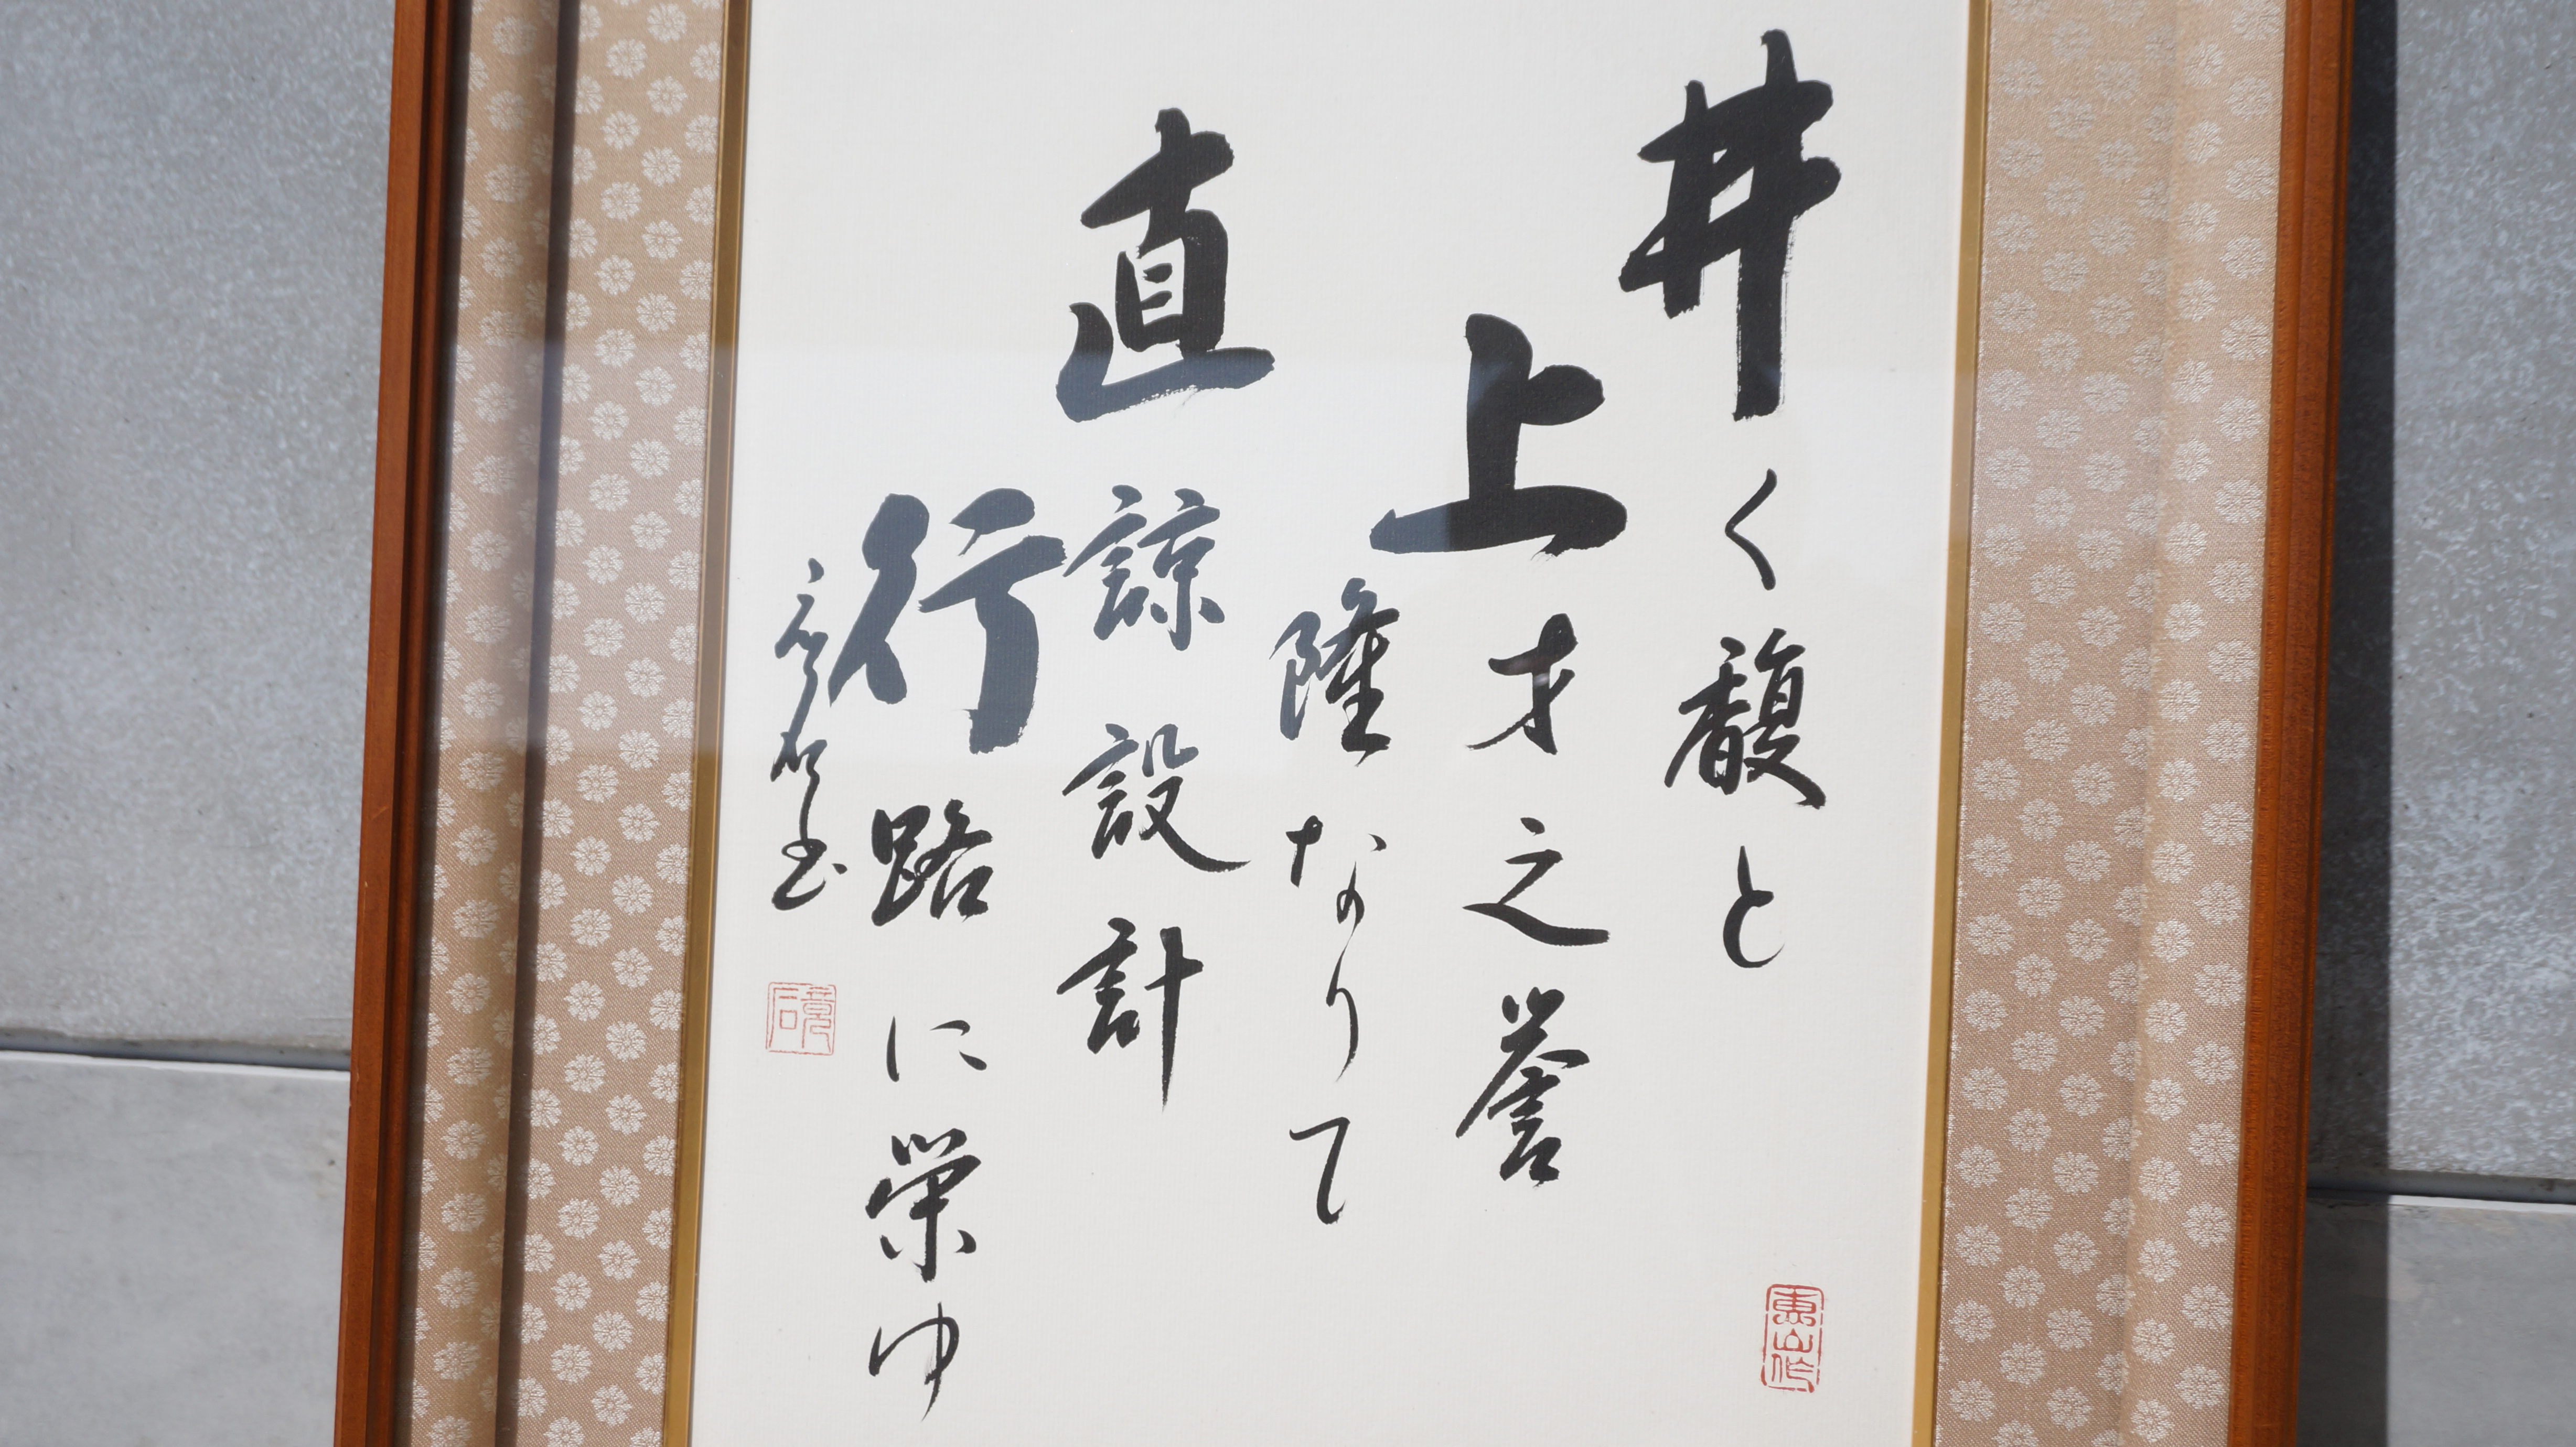 井く馥と
上才之誉
隆なりて
直諒設計
行路に栄ゆ